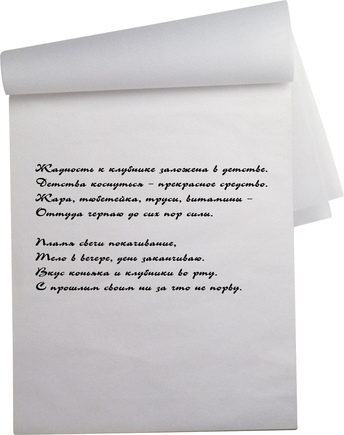 Жадность к клубнике заложена в детстве.
Детства коснуться – прекрасное средство.
Жара, тюбетейка, трусы, витамины –
Оттуда черпаю до сих пор силы.

Пламя свечи покачивание,
Тело в вечере, день заканчиваю.
Вкус коньяка и клубники во рту.
С прошлым своим ни за что не порву.